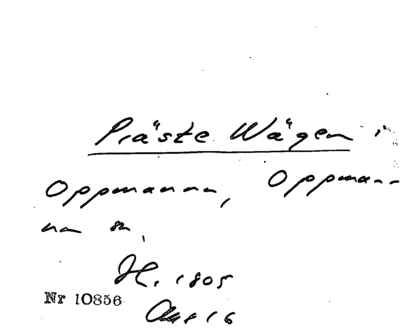 Präste Wägen i
Oppmanna, Oppman-
na sn,
H. 1805
Nr 10856
Akt 16